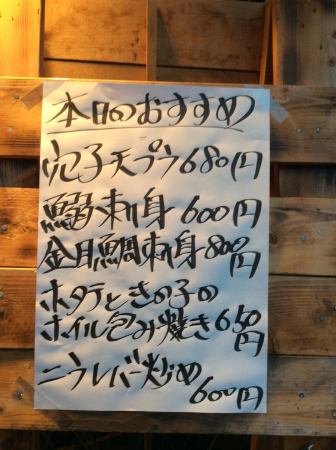 本日のおすすめ
穴子天プラ680円
鰯刺身600円
金目鯛刺身800円
ホタテときの子の
ホイル包み焼き650円
ニラレバー炒め
600円